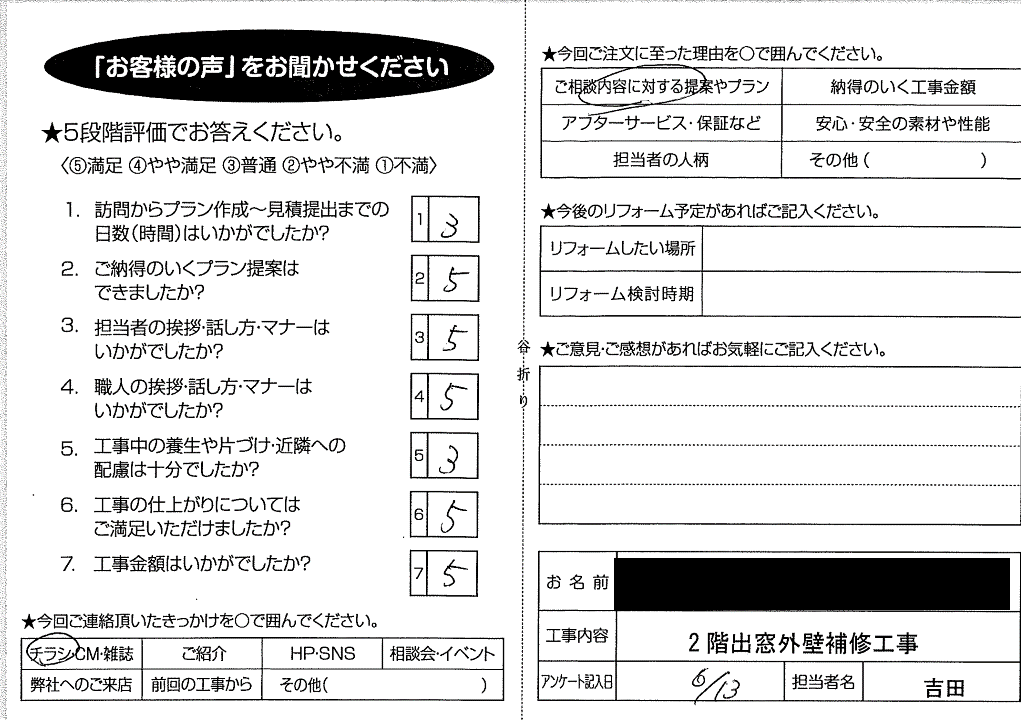 「お客様の声」をお聞かせください
★5段階評価でお答えください。
〈⑤満足 ④やや満足 ③普通 ②やや不満 ①不満〉
1. 訪問からプラン作成~見積提出までの
日数(時間)はいかがでしたか?
1 3
2. ご納得のいくプラン提案は
できましたか?
2 5
3. 担当者の挨拶・話し方・マナーは
いかがでしたか?
3 5
4. 職人の挨拶・話し方・マナーは
いかがでしたか?
4 5
5. 工事中の養生や片づけ・近隣への
配慮は十分でしたか?
5 3
6. 工事の仕上がりについては
ご満足いただけましたか?
6 5
7. 工事金額はいかがでしたか?
7 5
★今回ご連絡頂いたきっかけを○で囲んでください。
チラシ・CM・雑誌 ご紹介 HP・SNS 相談会・イベント
弊社へのご来店 前回の工事から その他( )
谷折り
★今回ご注文に至った理由を○で囲んでください。
ご相談内容に対する提案やプラン 納得のいく工事金額
アフターサービス・保証など 安心・安全の素材や性能
担当者の人柄 その他( )
★今後のリフォーム予定があればご記入ください。
リフォームしたい場所
リフォーム検討時期
★ご意見・ご感想があればお気軽にご記入ください。
お名前
工事内容 2階出窓外壁補修工事
アンケート記入日 6/13 担当者名 吉田